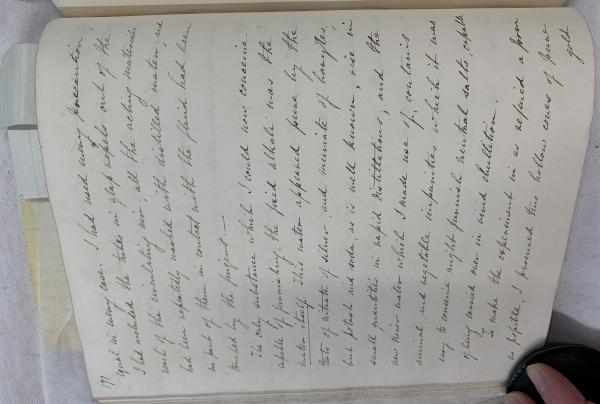 177
equal in every case. I had used every precaution,
I had included the tubes in glass vessels out of the
reach of the circulating air; all the acting materials
had been repeatedly washed with distilled water; and
no part of them in contact with the fluid had been
touched by the fingers. —
The only substance which I could now conceive
capable of furnishing the fixed alkali was the
water itself. This water appeared pure by the
tests of nitrate of silver and muriate of barytes;
but potash and soda, as is well known, rise in
small quantities in rapid distillation; and the
new river water which I made use of, contains
animal and vegetable impurities which it was
easy to conceive might furnish neutral salts capable
of being carried over in vivid ebullition.
To make the experiment in as refined a form
as possible, I procured two hollow cones of pure
gold